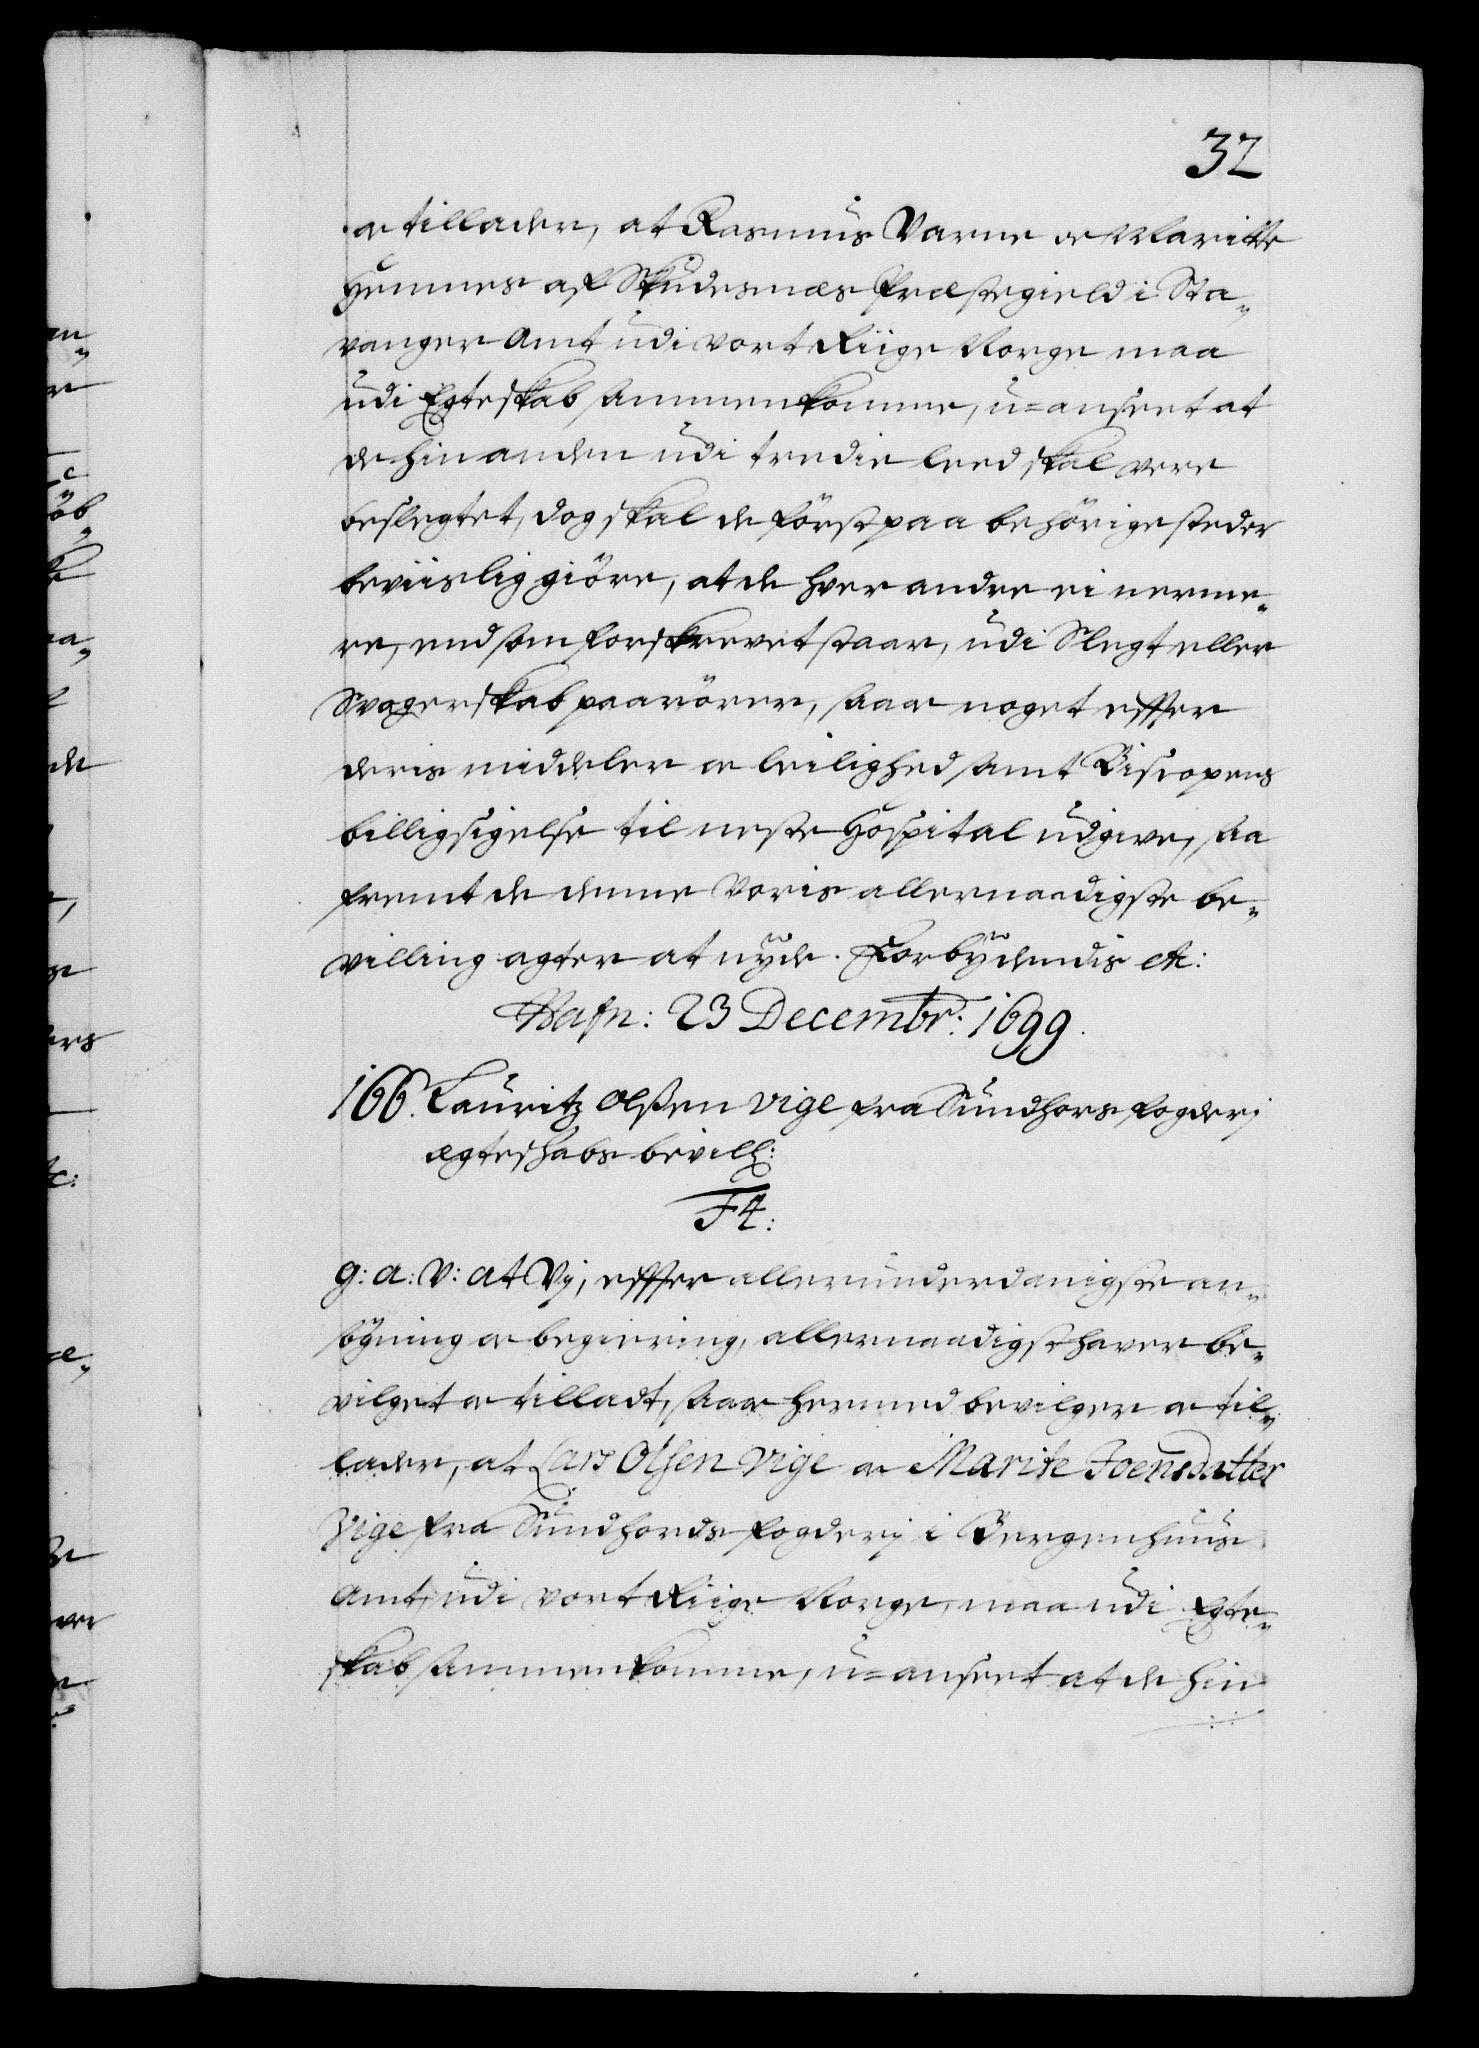 32
og tillader, at Rasmus Varne og Maritte
Hemnes af Skudesnæs Præstegield i Sta¬
vanger Amt udi vort Riige Norge maa
udi Egteskab sammenkomme, u=anseet at
de hinanden udi tredie leed skal være
beslegtet, dog skal de först paa behörige steder
beviislig giöre, at de hver andre ei nerme¬
re, end som forskrevet staar, udi Slegt eller
Svogerskab paarörer, saa og noget effter
deris middeler og leilighed samt Biscopens
billigsigelse til neste Hospital udgive, saa
fremt de denne Voris allernaadigste be¬
villing agter at nyde. Forbydendis etc:
Hafn: 23 Decembr: 1699.
166. Lauritz Olßen Vige fra Sundhors fogderj
ægteskabs bevill:
F 4:
G: A: V: at Vj, effter allerunderdanigste an¬
sögning og begiering, allernaadigst haver be¬
vilget og tilladt, saa og hermed bevilger og til¬
lader, at Lars Olsen Vige og Marite Joensdatter
Vige fra Sundhords fogderj i Bergenhuus
Amt, udi vort Riige Norge, maa udi Egte¬
skab sammenkomme, u=anseet at de hin